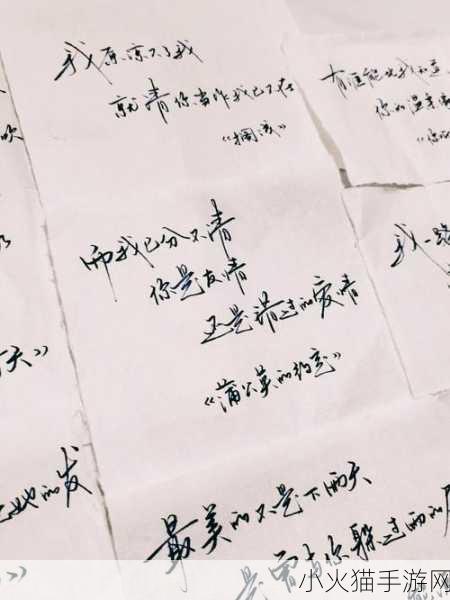 我原谅不了我
就请你当作我已不在
《搁浅》
有谁能比我知道
你的温柔
《你
而我已分不清
你是友情
还是错过的爱情
《蒲公英的约定》
我一路
天》
的发
最美的不是下雨天
是曾与你躲过雨的
小火猫手游网